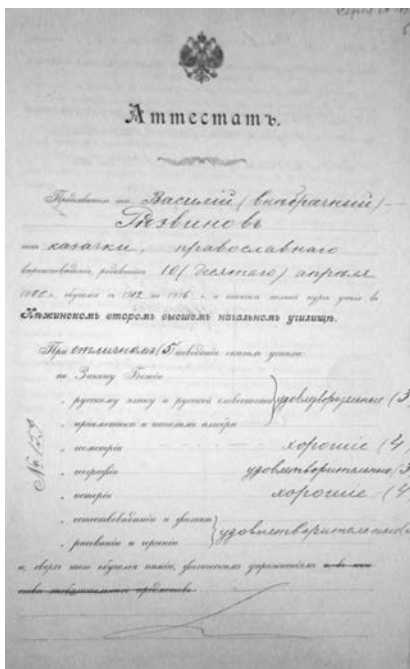 Аттестатъ.
Василій (внѣбрачный)
казачки, православнаго
вѣроисповѣданія, 10 (десятаго) апрѣля
1900 г. обучался съ 1912 по 1916 г. и окончилъ полный курсъ ученія въ
Нѣжинскомъ второмъ высшемъ начальномъ училищѣ.
При отличномъ (5) поведеніи оказалъ успѣхи:
по Закону Божію
„ русскому языку и русской словесности удовлетворительные (3
„ ариѳметикѣ и началамъ алгебры
„ геометріи хорошіе (4)
„ географіи удовлетворительные (3
„ исторіи хорошіе (4
„ естествовѣдѣнію и физикѣ
„ рисованію и черченію удовлетворительные
и, сверхъ того обучался пѣнію, физическимъ упражненіямъ
№ 159